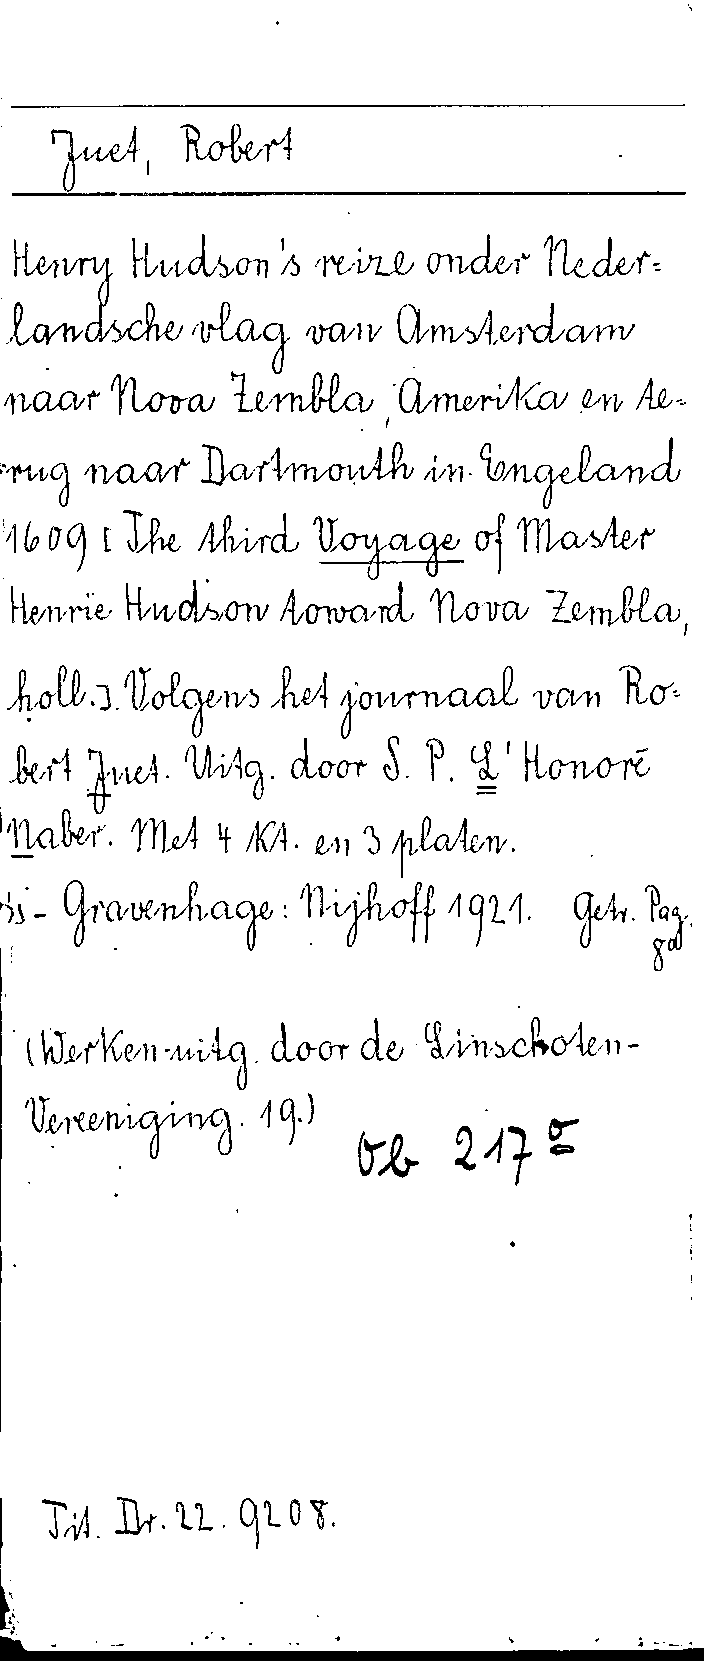 Juet, Robert
Henry Hudson's reize onder Neder=
landsche vlag van Amsterdam
naar Nova Zembla, Amerika en te=
rug naar Dartmouth in Engeland
1609 [The third Voyage of Master
Henrie Hudson toward Nova Zembla,
holl.]. Volgens het journaal van Ro=
bert Juet. Uitg. door S. P. L'Honoré
Naber. Met 4 Kt. en 3 platen.
's-Gravenhage: Nijhoff 1921. Getr. Pag.
8°
(Werken uitg. door de Linschoten-
Vereeniging. 19.)
217
Tit. Dr. 22. 9208.